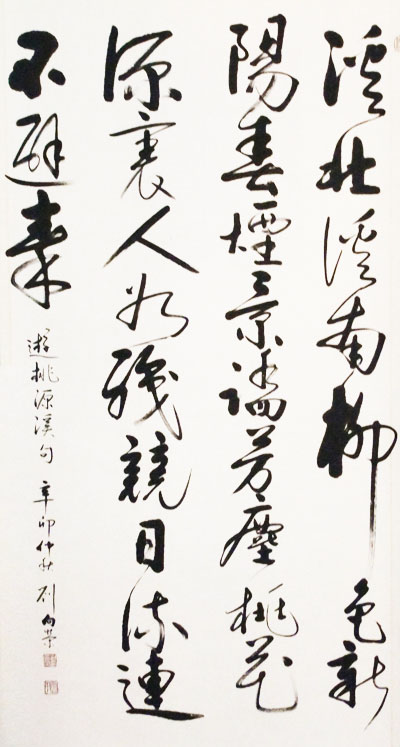 溪北溪南柳色新
陽春煙景芳塵桃花
源裏人競日流連
不避秦
遊桃源溪句 辛卯仲秋 刘向荣